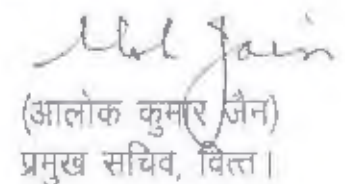 (आलोक कुमार जैन)
प्रमुख सचिव, वित्त।